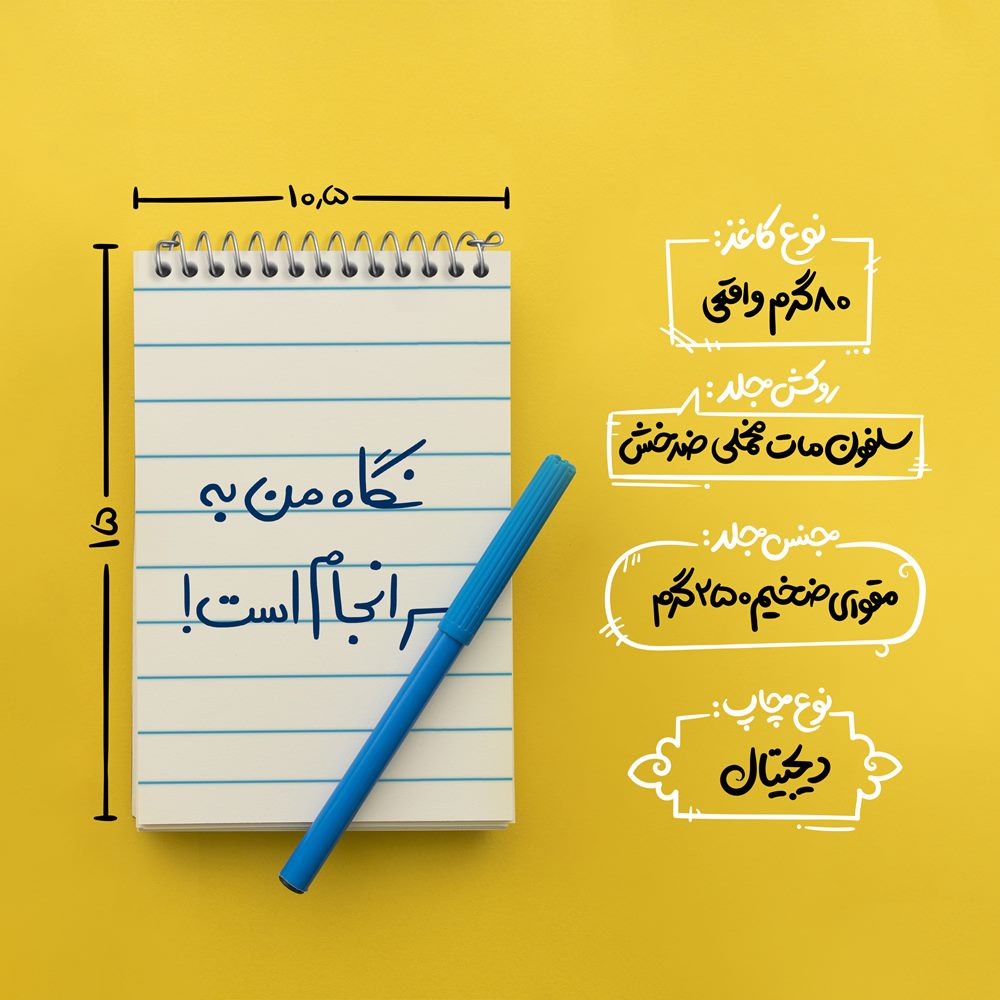 ۱۰٫۵
۱۵
نگاه من به
سرانجام است!
نوع کاغذ:
۸۰گرم واقعی
روکش جلد:
سلفون مات مخملی ضدخش
جنس جلد:
مقوای ضخیم ۲۵۰گرم
نوع چاپ:
دیجیتال